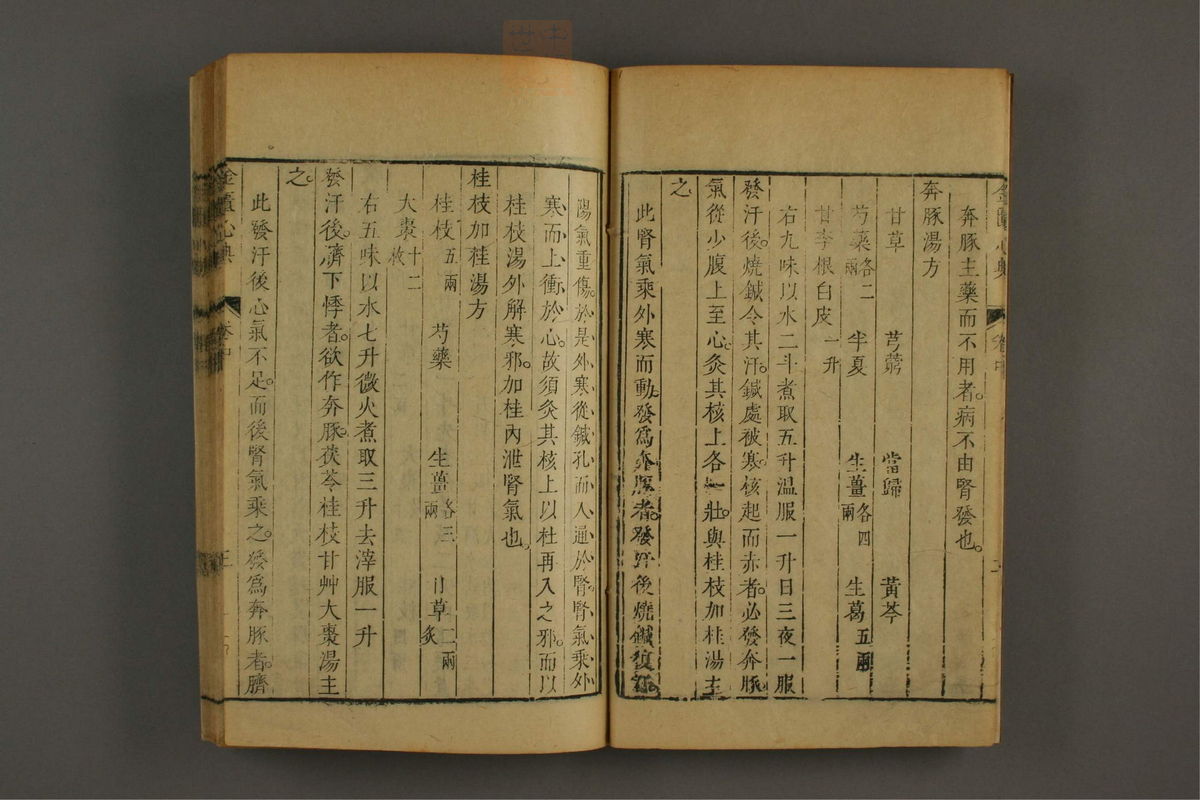 奔豚主藥而不用者。病不由腎發也。
奔豚湯方
甘草 芎藭 當歸 黃芩
芍藥各二兩 半夏 生薑各四兩 生葛五兩
甘李根白皮一升
右九味以水二斗煮取五升温服一升日三夜一服
發汗後。燒鍼令其汗。鍼處被寒。核起而赤者。必發奔豚。
氣從少腹上至心。灸其核上各一壯。與桂枝加桂湯主
之。
此腎氣乘外寒而動。發爲奔豚者。發汗後燒鍼復汗。
陽氣重傷。於是外寒從鍼孔而入通於腎。腎氣乘外
寒而上衝於心。故須灸其核上以杜再入之邪。而以
桂枝湯外解寒邪。加桂內泄腎氣也。
桂枝加桂湯方
桂枝五兩 芍藥 生薑各三兩 甘草二兩炙
大棗十二枚
右五味以水七升微火煮取三升去滓服一升
發汗後。臍下悸者。欲作奔豚。茯苓桂枝甘艸大棗湯主
之。
此發汗後心氣不足。而後腎氣乘之。發爲奔豚者。臍
金匱心典
卷中